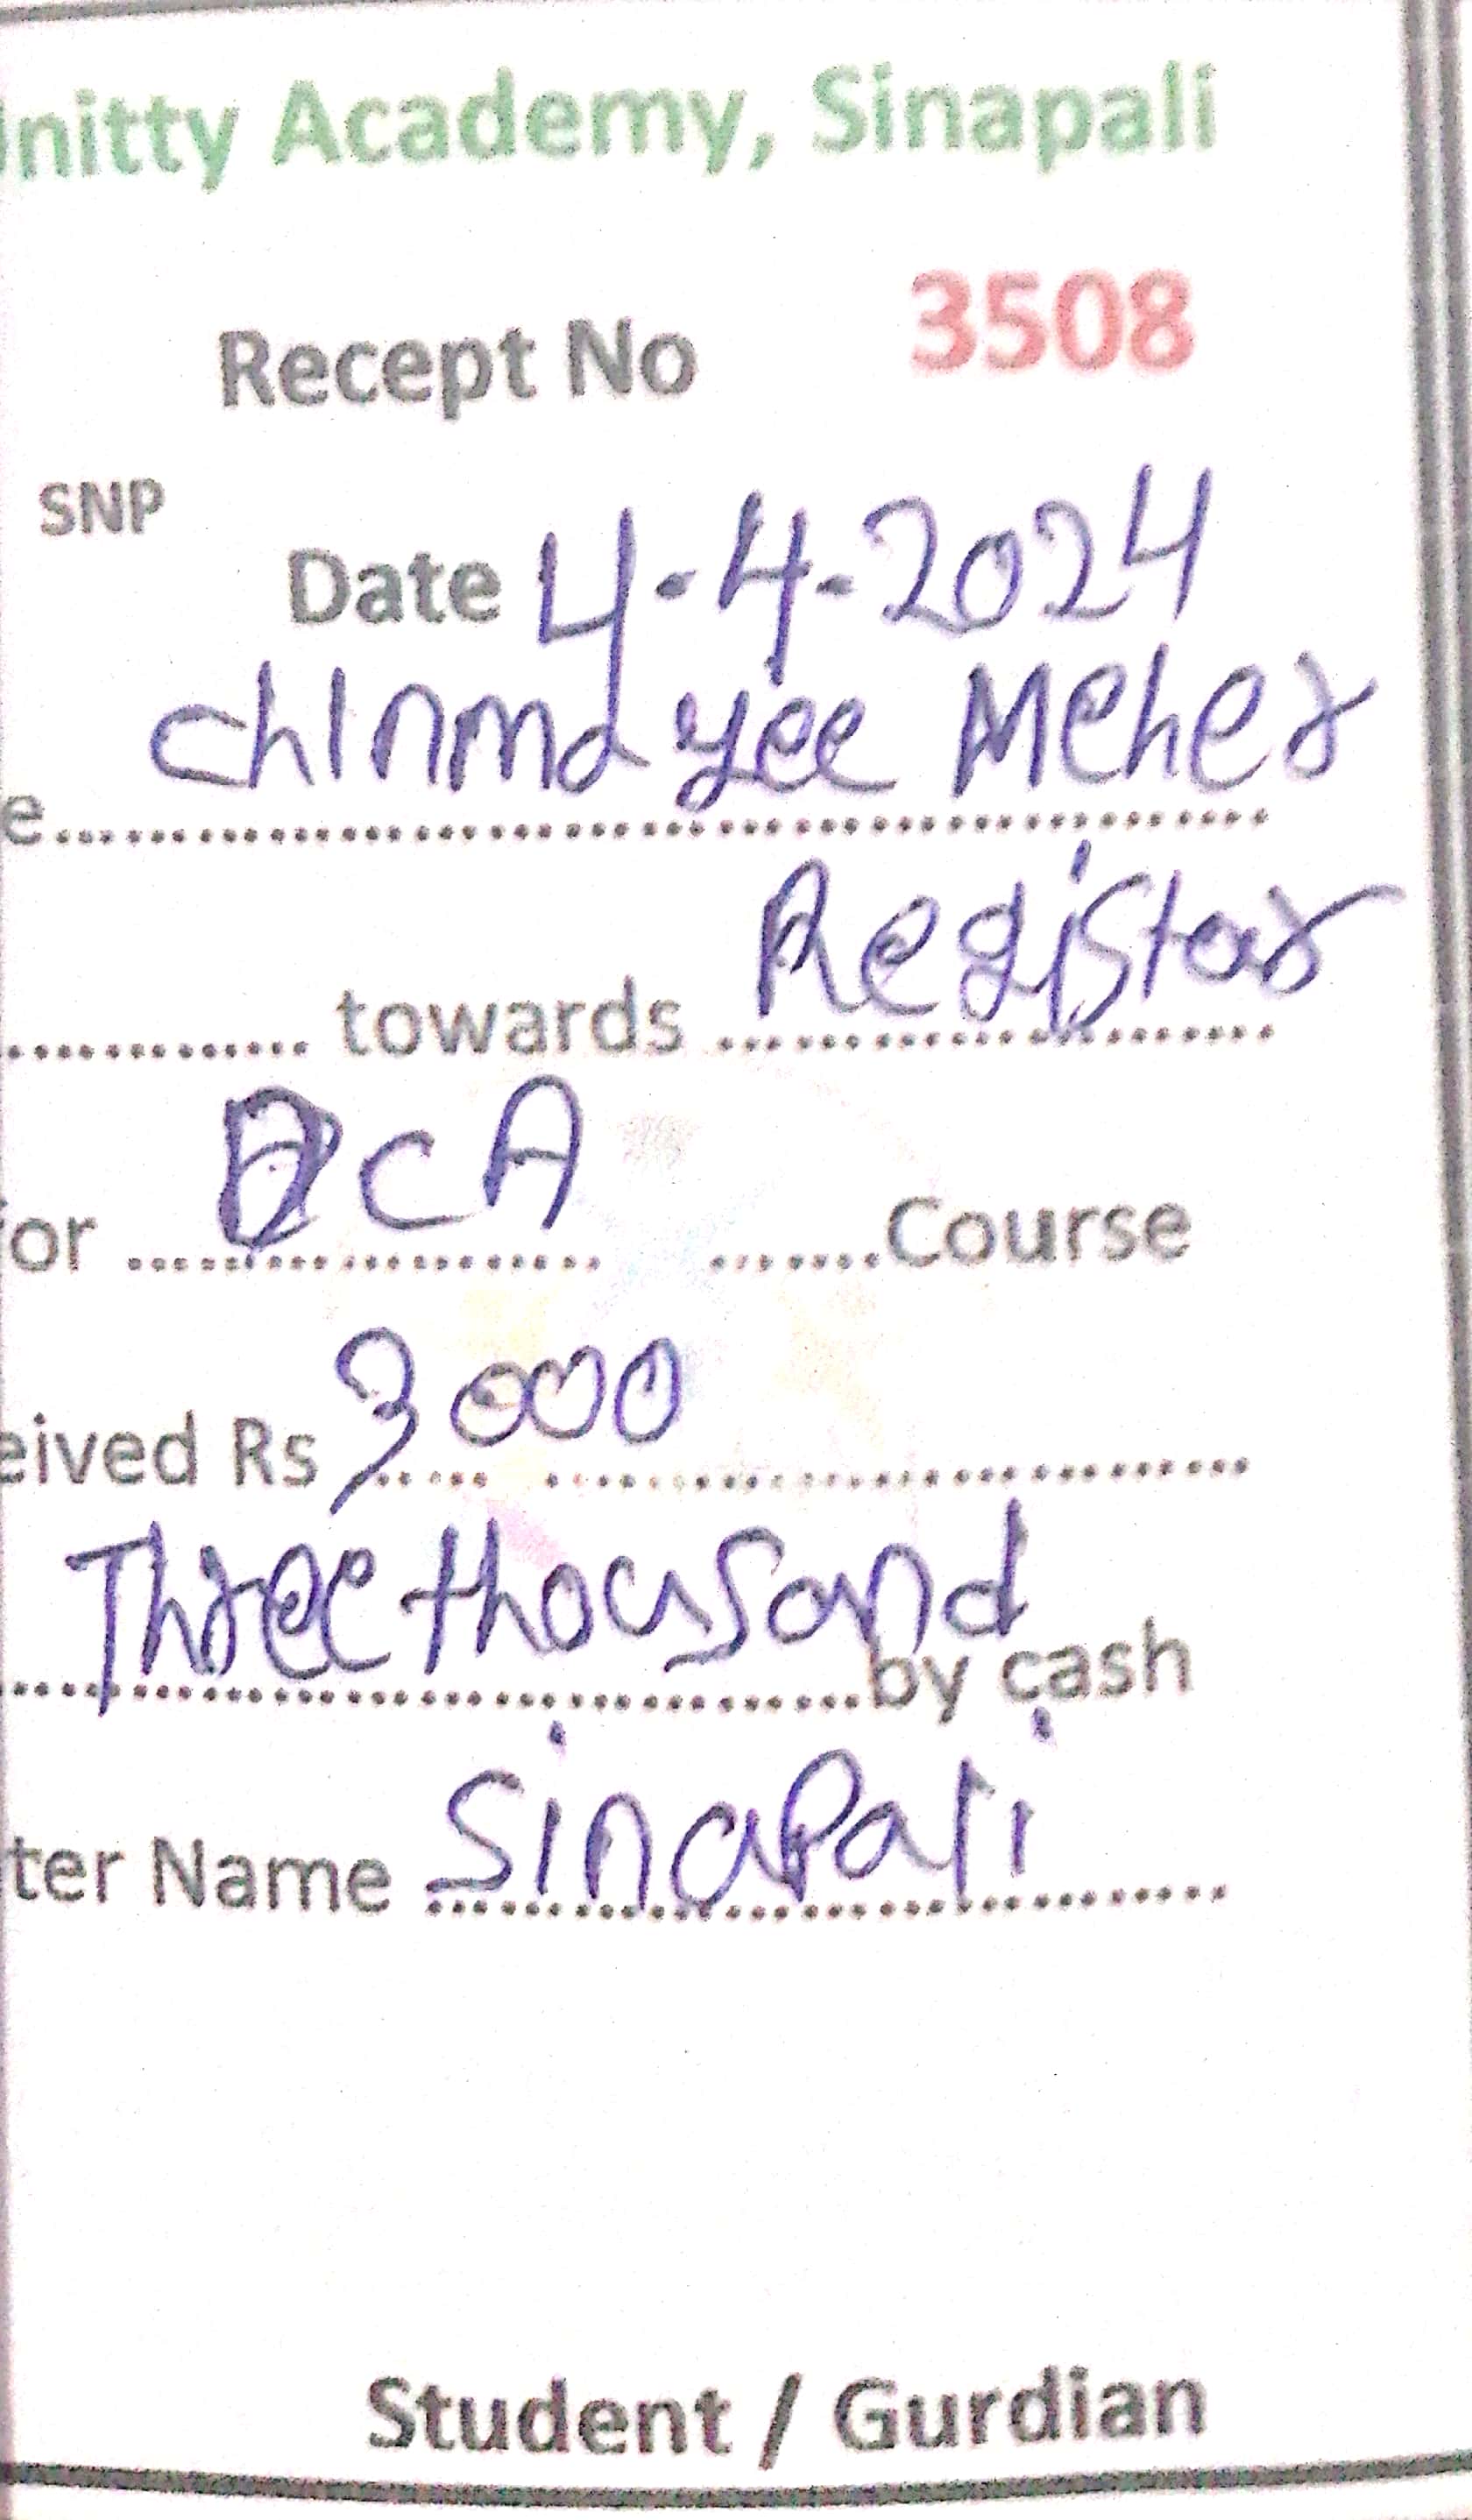 initty Academy, Sinapali
Recept No 3508
SNP
Date 4-4-2024
Chinmayee Meher
e..........
.......... towards Register
for DCA ..........Course
eived Rs 3000
Three thousand by cash
ter Name Sinapali
Student / Gurdian